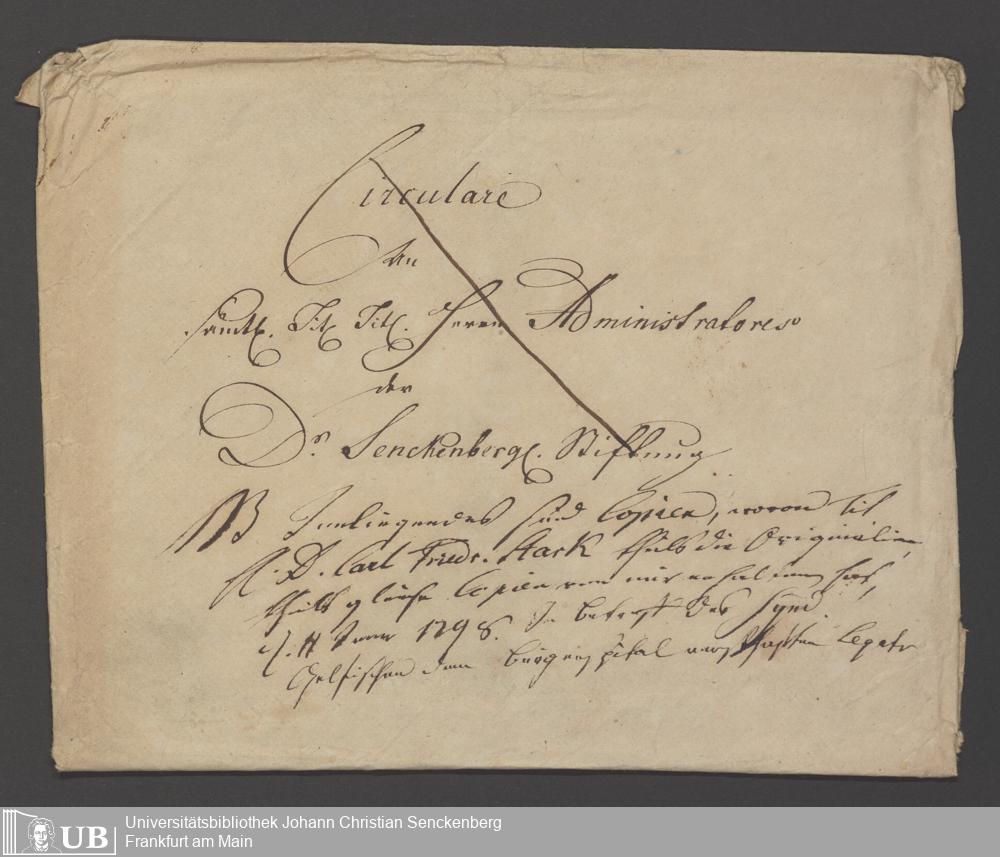 Circulare
An
sämtl. Tit. Titl. Herren Administratores
der
Dr. Senckenbergl. Stiftung
NB Innliegendes sind Copien, wovon Tit
H. D. Carl Friedr. Stark theils die Originalien,
theils gleiche Copien von mir erhalten hat,
d. 11 1798. In betreff des Synd.
dem Bürgerspital vermachten Legats
UB
Universitätsbibliothek Johann Christian Senckenberg
Frankfurt am Main